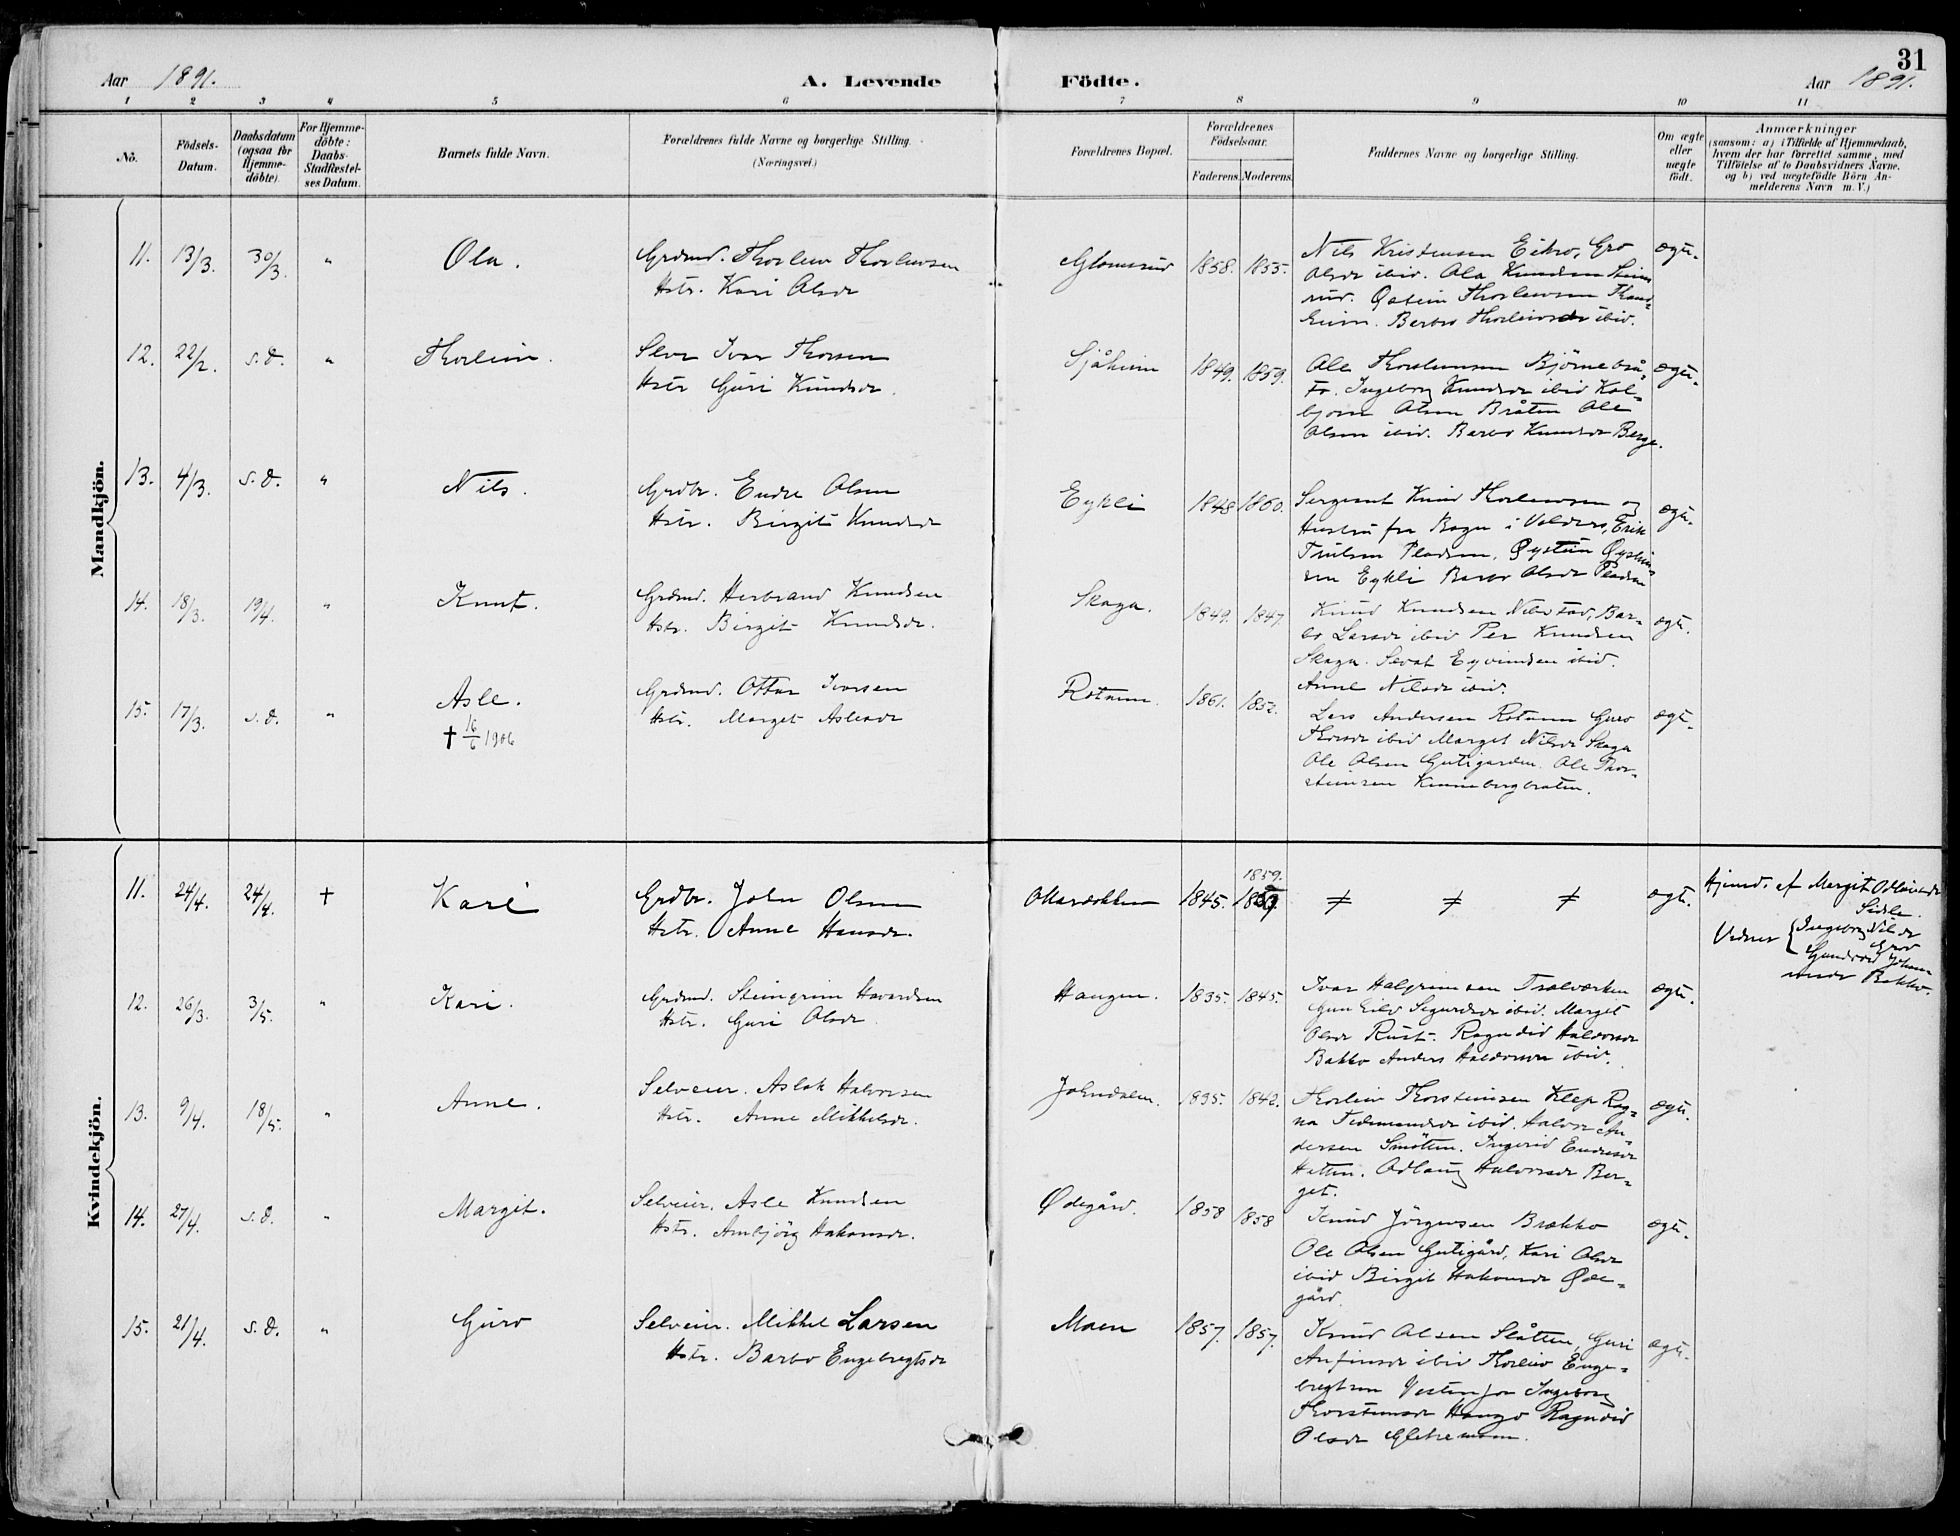 31
Aar 1891. A. Levende Födte. Aar 1891.
1 2 3 4 5 6 7 8 9 10 11
No. Födsels-Datum. Daabsdatum (ogsaa for Hjemme-döbte). For Hjemme-döbte: Daabs-Stadfæstel-ses Datum. Barnets fulde Navn. Forældrenes fulde Navne og borgerlige Stilling. (Næringsvei.) Forældrenes Bopæl. Forældrenes Födselsaar. Faderens. Moderens. Faddernes Navne og borgerlige Stilling. Om ægte eller uægte födt. Anmærkninger
(saasom: a) i Tilfælde af Hjemmedaab,
hvem der har forrettet samme, med
Tilföielse af to Daabsvidners Navne.
og b) ved uægtefödte Börn An-
melderens Navn m. V.)
Mandkjön.
11. 13/3. 30/3. " Ola. Grdmd. Thorleiv Thorleivsen
Hstr. Kari Olsdr
Glomsrud 1858. 1855.
Nils Kristensen Eikro, Gro
Olsdr ibid. Ola Knudsen
rud. Østein Thorleivsen
Barbro Thorleivsdr ibid.
ægte.
12. 22/2. s. d. " Thorleiv. Selvr Ivar Thorsen
Hstr Guri Knudsdr.
Sjåheim 1849. 1859.
Ole Thorsteinsen Björnebrå-
to. Ingeborg Knudsdr ibid Kol-
bjorn Olsen Bråten Ole
Olsen ibid. Barbo Knudsdr Berge.
ægte.
13. 4/3. s. d. " Nils. Grdbr. Endre Olsen
Hstr. Birgit Knudsdr
Eykli 1848 1860.
Sergeant Knud Thorleivsen og
Hustru fra Bagn i Valdres, Erik
Trulsen Pladsen, Øystein Øystein
sen Eykli Barbo Olsdr Pladsen
ægte.
14. 18/3. 19/4. " Knut. Grdmd. Herbrand Knudsen
Hstr. Birgit Knudsdr.
Skaga. 1849. 1847.
Knud Knudsen Nibstad, Bar-
bo Larsdr ibid Per Knudsen
Skaga. Sevat Eyvindsen ibid.
Anne Nilsdr ibid.
ægte.
15. 17/3. s. d. " Asle.
† 16/6 1906
Grdmd. Ottar Ivarsen
Hstr. Marget Aslesdr
Rotnem. 1861. 1852.
Lars Andersen Rotnem Guro
Thorsdr ibid Marget Nilsdr Skaga
Ole Olsen Gutigarden. Ole Thor-
steinsen Kinnebergbraten.
ægte.
Kvindekjön.
11. 24/4. 24/4. † Kari Grdbr. John Olsen
Hstr. Anne Hansdr.
1845. 1859.
≠ ≠ ≠ ægte.
Hjemd. af Margit
Sidle.
Vidner Ingeborg Nilsdr
Bakko.
12. 26/3. 3/5. " Kari. Grdmd. Steingrim Havardsen
Hstr. Guri Olsdr
Haugen. 1835. 1845.
Ivar Halgrimsen Trælværken
Gunhild Sigurdsdr ibid. Marget
Olsdr Rust. Ragndid Halvorsdr
Bakko Anders Halvorsen ibid.
ægte.
13. 9/4. 18/5. " Anne. Selveier. Aslak Halvorsen
Hstr. Anne Mikkelsdr.
Johndalen. 1835. 1842.
Thorleiv Thorsteinsen Klep Rag-
na Tidemandsdr ibid. Halvor An-
dersen Smøtten. Ingerid Endresdr
Hatten. Odlaug Halvorsdr Ber-
get.
ægte.
14. 27/4. s. d. " Margit. Selveier. Asle Knudsen
Hstr. Ambjörg Hakonsdr.
Ødegård. 1858 1858
Knud Jörgensen Brækko
Ole Olsen Gutigård, Kari Olsdr
ibid Birgit Hakonsdr Øde-
gård.
ægte.
15. 21/4. s. d. " Guro Selveier. Mikkel Larsen
Hstr. Barbo Engebregtsdr
Moen 1857. 1857.
Knud Olsen Slåtten, Guri
Anfinsdr ibid Thorleiv Enge-
bregtsen Ingeborg
Thorsteinsdr Haugo Ragndid
Olsdr Gletnemoen.
ægte.